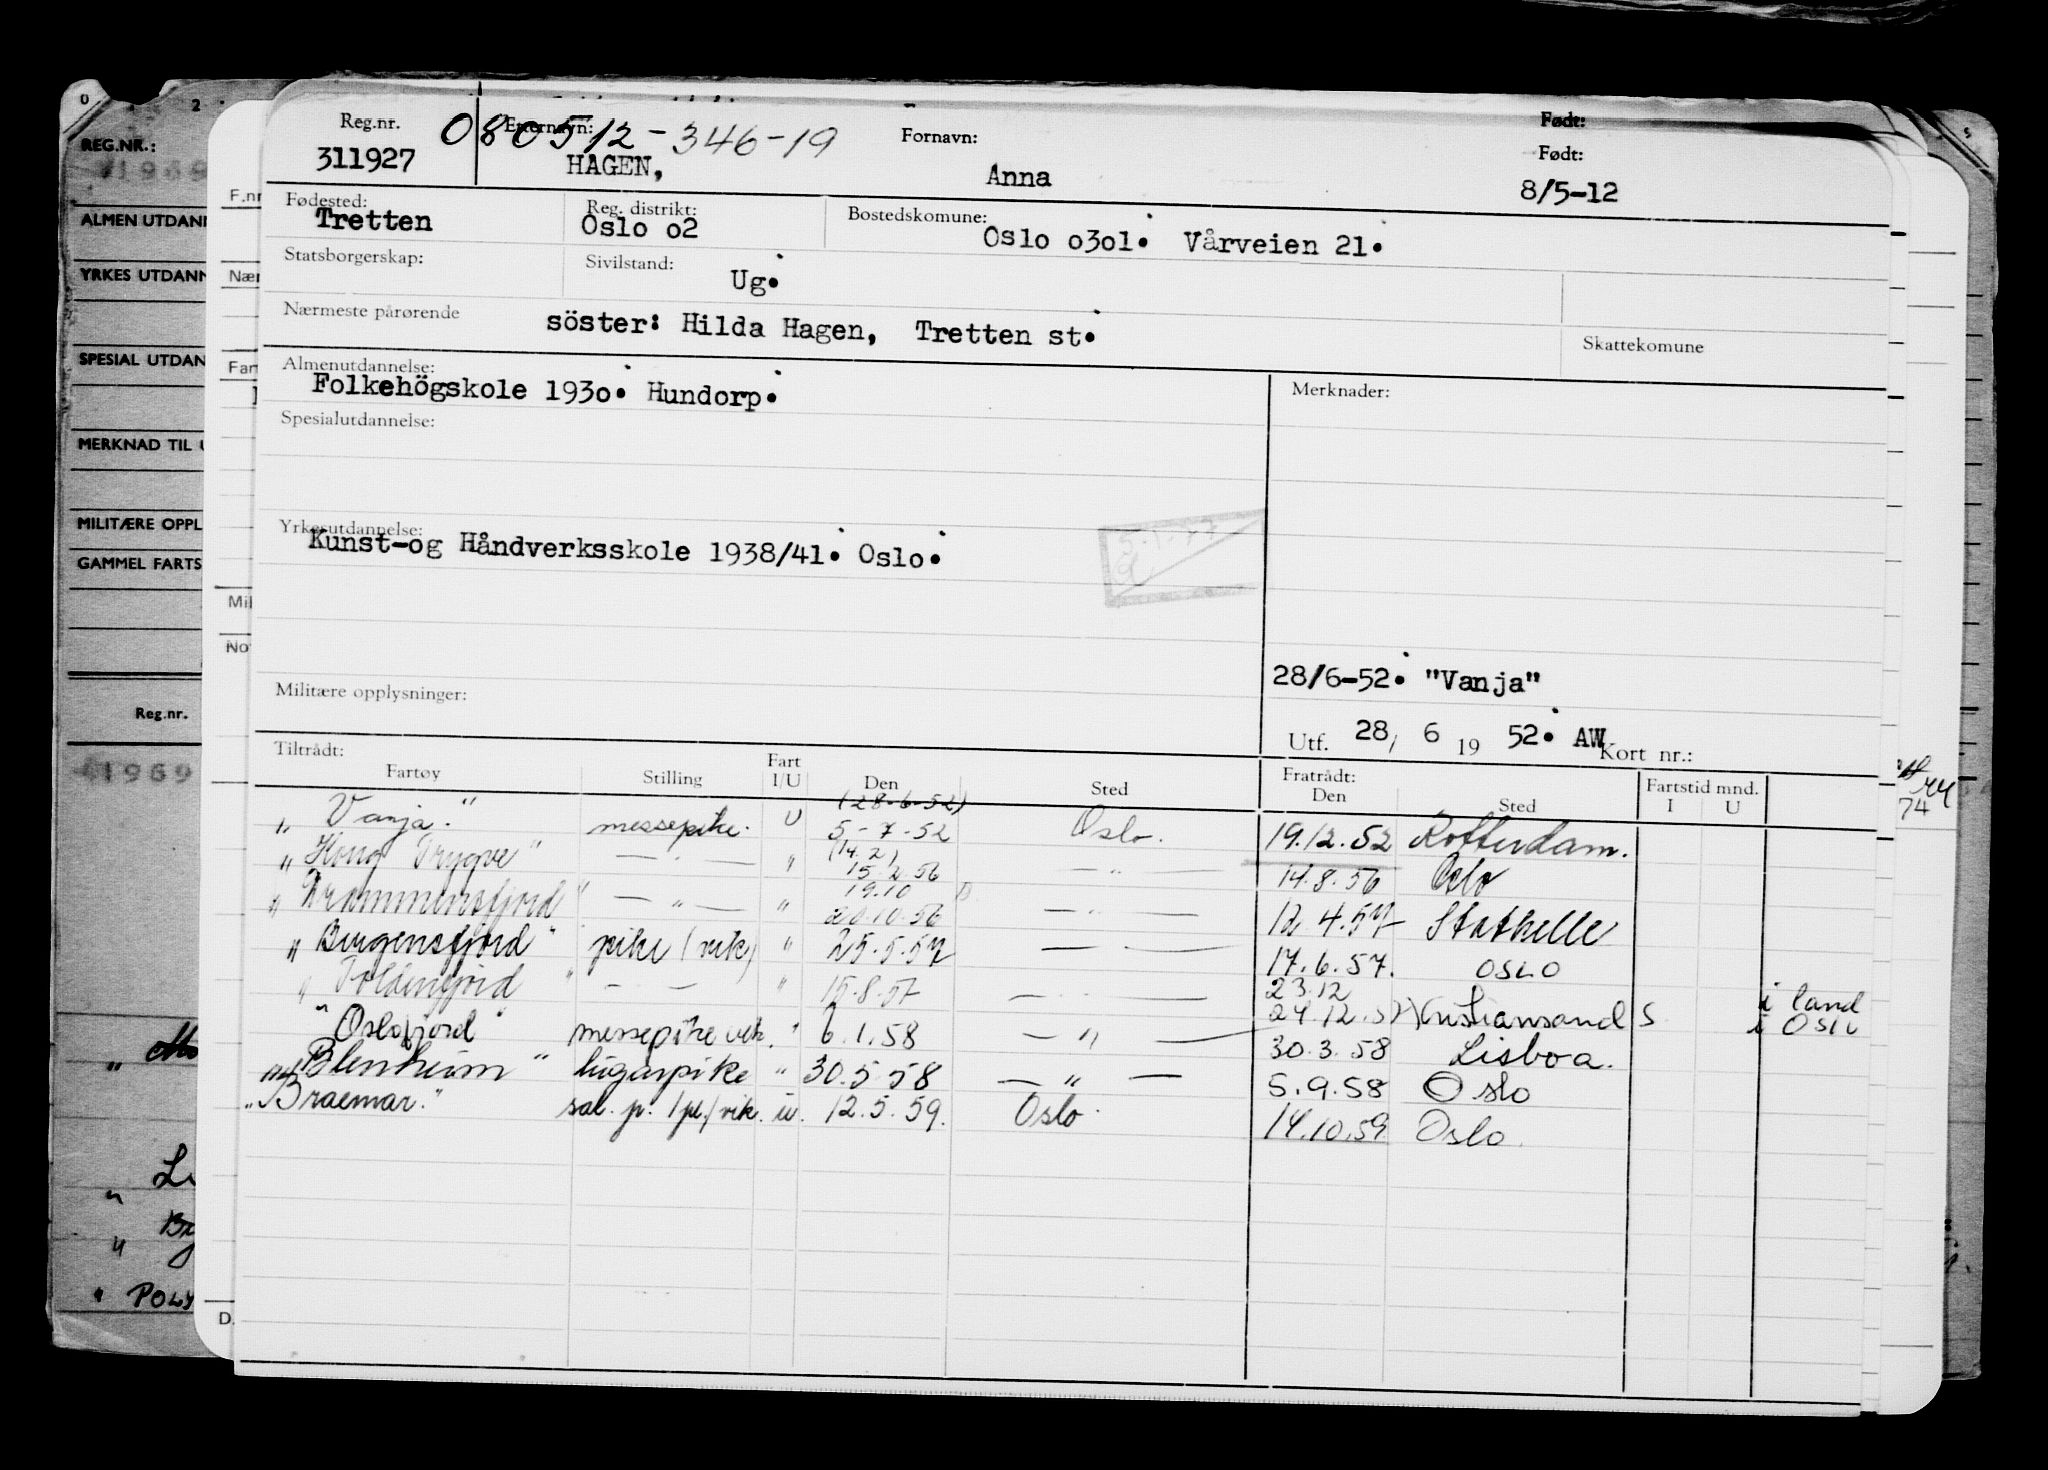 Reg.nr. 080512-346-19 Etternavn: Fornavn: Født:
Født:
311927 HAGEN, Anna 8/5-12
Fødested: Reg. distrikt: Bostedskomune:
Tretten Oslo o2 Oslo o3o1. Vårveien 21.
Statsborgerskap: Sivilstand:
Ug.
Nærmeste pårørende söster: Hilda Hagen, Tretten st.
Skattekomune
Almenutdannelse: Merknader:
Folkehögskole 193o. Hundorp.
Spesialutdannelse:
Yrkesutdannelse:
Kunst-og Håndverksskole 1938/41. Oslo.
5-1-77
28/6-52. "Vanja"
Militære opplysninger:
Utf. 28/ 6 19 52. AW Kort nr.:
Tiltrådt: Fratrådt:
Fartøy Stilling Fart I/U Den Sted Den Sted Fartstid mnd. I U
(28-6-52)
"Vanja." messepike. U 5-7-52 Oslo. 19.12.52 Rotterdam.
(14.2)
"Kong Trygve" — " — " 15.2.56 — " — 14.8.56 Oslo
19.10
"Drammensfjord" — " — " 20.10.56 — " — 12.4.57 Stathelle
"Bergensfjord" pike (vik) " 25.5.57 — " — 17.6.57. OSLO
23.12 i land
" Foldenfjord " — " — " 15.8.57 — " — 24.12.57 Kristiansand S i Oslo
"Oslofjord" messepike vik. " 6.1.58 — " — 30.3.58 Lisboa.
"Blenheim" lugarpike " 30.5.58 — " — 5.9.58 Oslo
"Braemar." sal. p. /pl./ vik. u. 12.5.59. Oslo. 14.10.59 Oslo.
O 2
REG.NR.:
1969
ALMEN UTDANN
YRKES UTDANN
SPESIAL UTDAN
MERKNAD TIL U
MILITÆRE OPPL
GAMMEL FARTS
Reg.nr.
1969
POLY
F.nr
Nær
Fart
Mil
No
D.
74
S